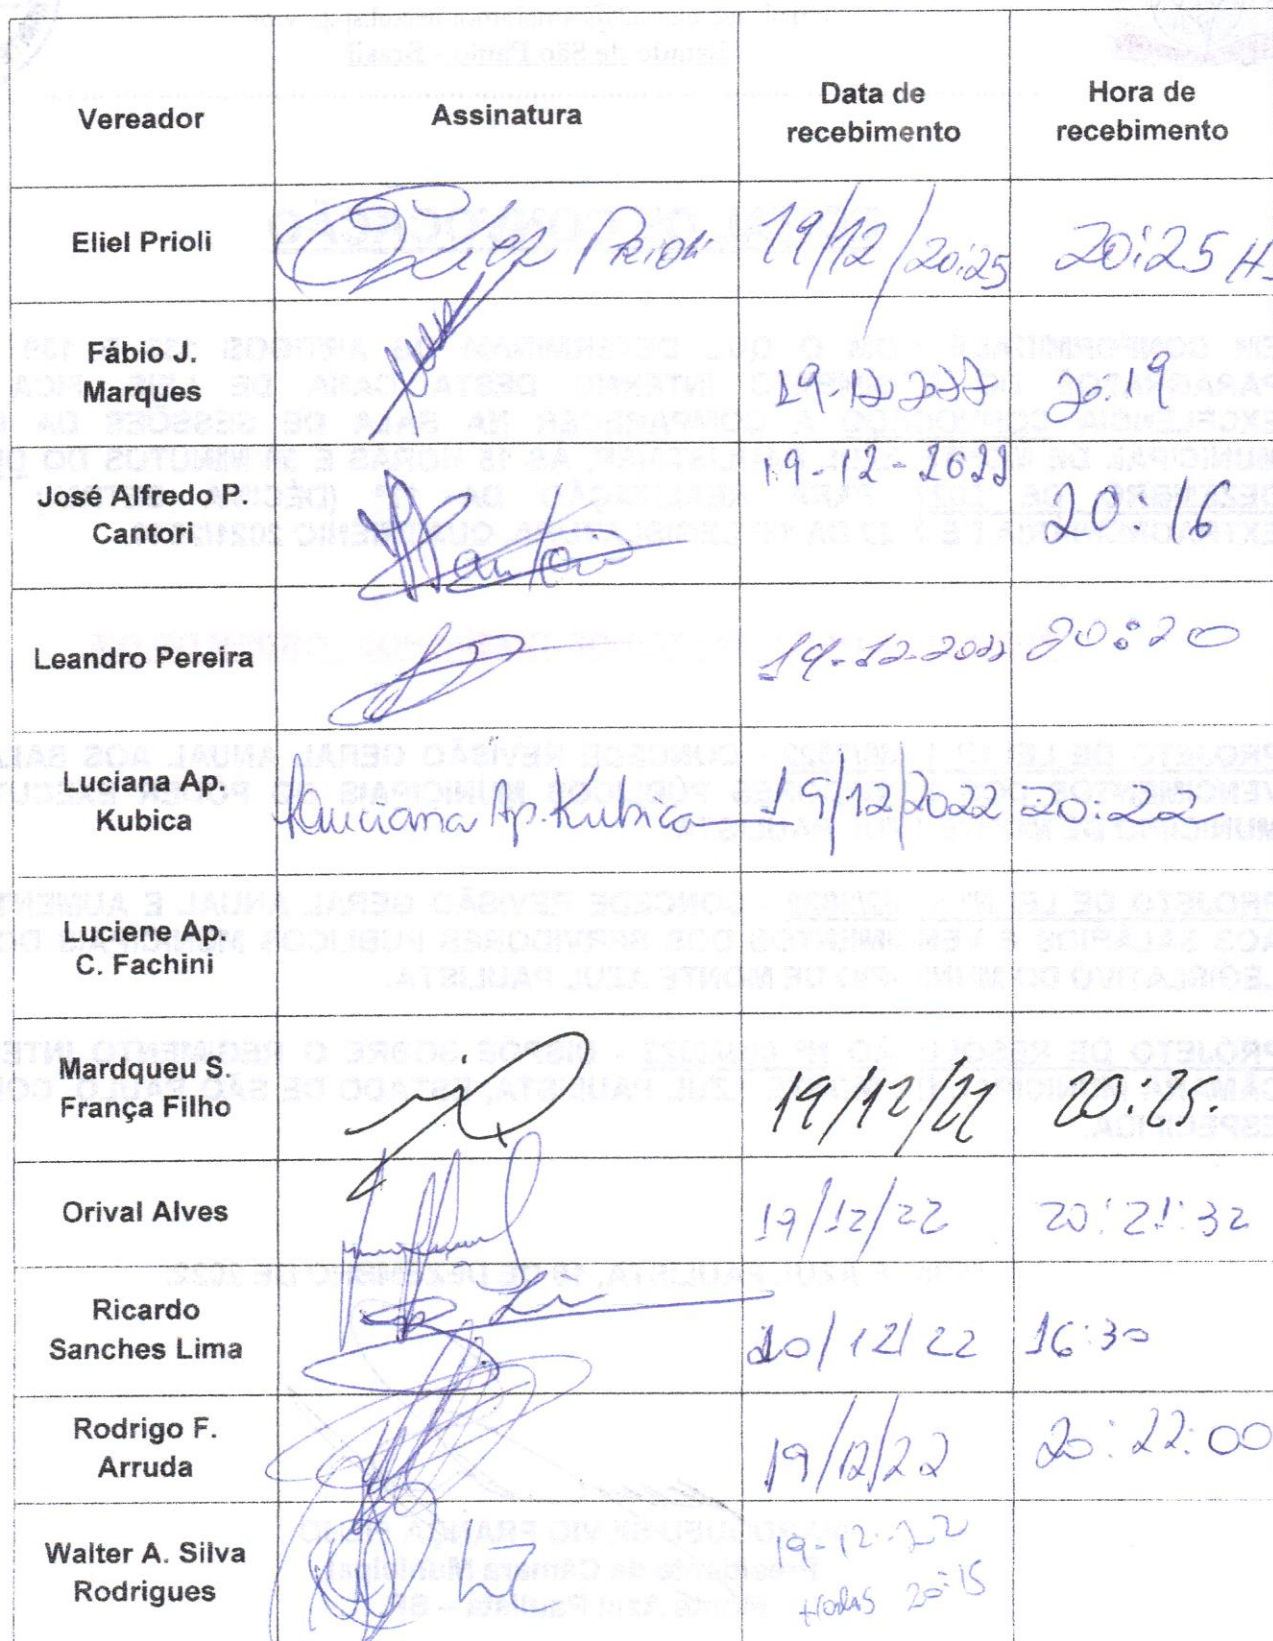 Vereador
Assinatura
Data de
recebimento
Hora de
recebimento
Eliel Prioli
Eliel Prioli
19/12/20:25
20:25 H
Fábio J.
Marques
19-12-2022
20:19
José Alfredo P.
Cantori
Cantori
19-12-2022
20:16
Leandro Pereira
19-12-2022
20:20
Luciana Ap.
Kubica
Luciana Ap. Kubica
19/12/2022
20:22
Luciene Ap.
C. Fachini
Mardqueu S.
França Filho
19/12/22
20:25.
Orival Alves
19/12/22
20:21:32
Ricardo
Sanches Lima
20/12/22
16:30
Rodrigo F.
Arruda
19/12/22
20:22:00
Walter A. Silva
Rodrigues
19-12-22
Horas 20:15